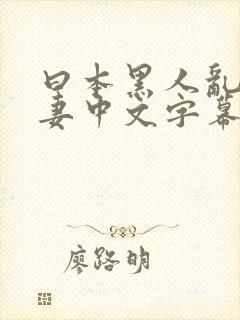 日本黑人亂
妻中文字幕
廖路明